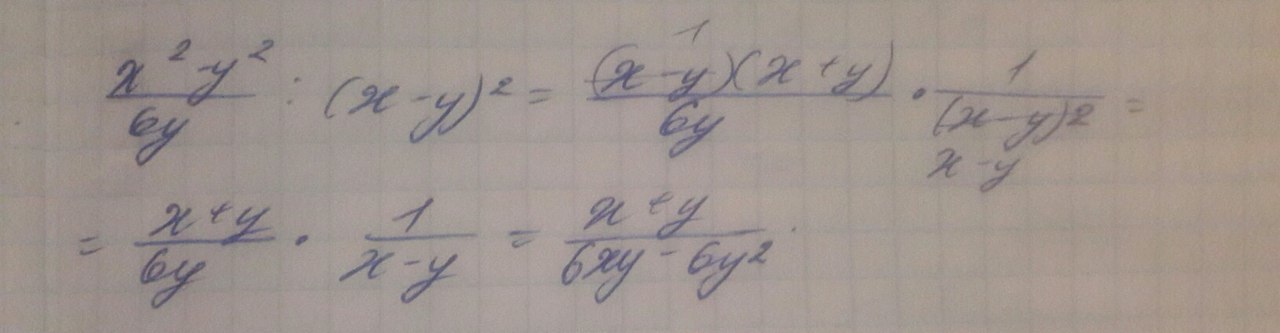 x² - y² / 6y : (x - y)² = (x - y)(x + y) / 6y · 1 / (x - y)² =
1
x - y
= x + y / 6y · 1 / x - y = x + y / 6xy - 6y²